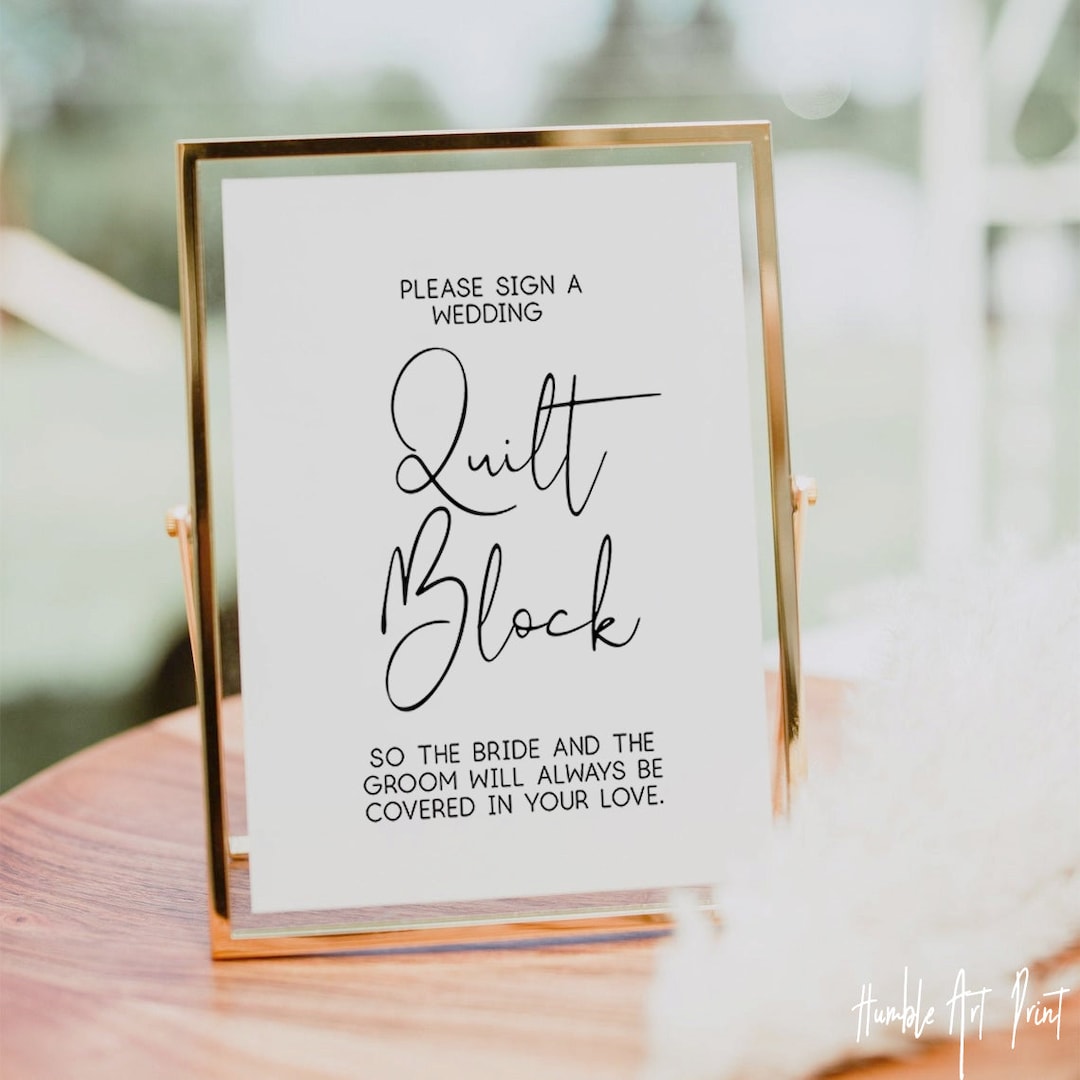 PLEASE SIGN A
WEDDING
Quilt
Block
SO THE BRIDE AND THE
GROOM WILL ALWAYS BE
COVERED IN YOUR LOVE.
Humble Art Print